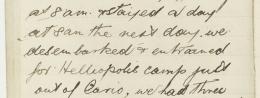 at 8 am. & stayed a day
at 8 am the next day, we
desembarked & entrained
for Helliopolis camp just
out of Cario, we had three